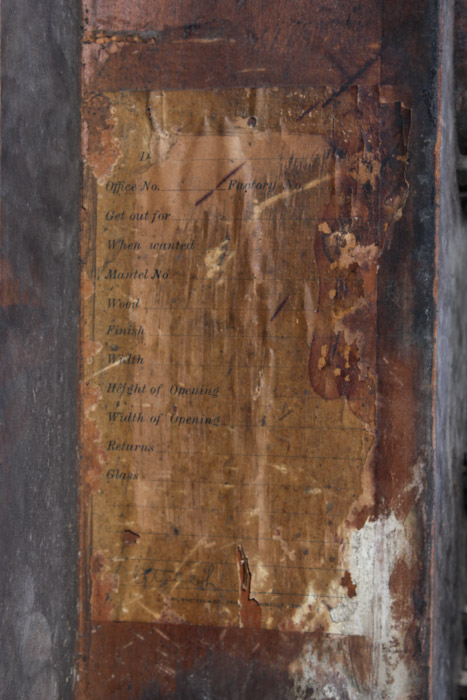 D
Office No. Factory No.
Get out for
When wanted
Mantel No
Wood
Finish
Width
Height of Opening
Width of Opening
Returns
Glass